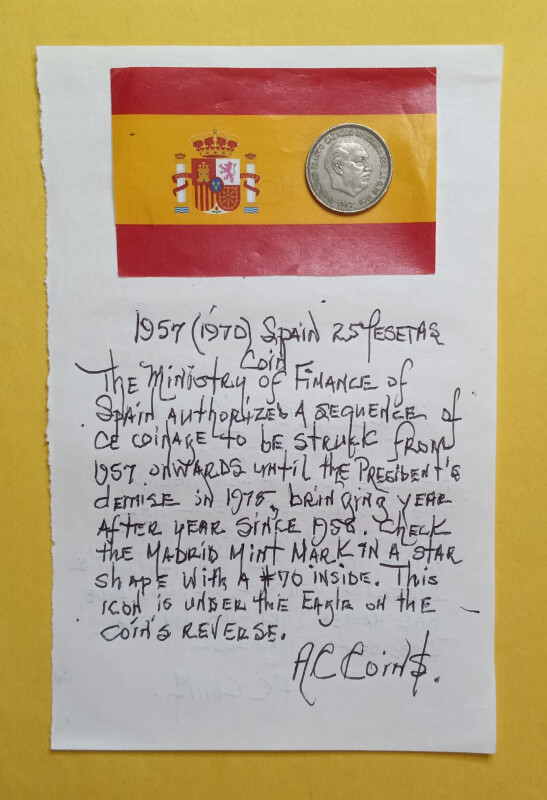 1957 (1970) Spain 25 Pesetas
Coin
The Ministry of Finance of
Spain authorizes a sequence of
CE coinage to be struck from
1957 onwards until the President's
demise in 1975, bringing year
after year since 1958. Check
the Madrid Mint Mark in a star
shape with a #70 inside. This
icon is under the Eagle on the
coin's reverse.
A.C Coin$.